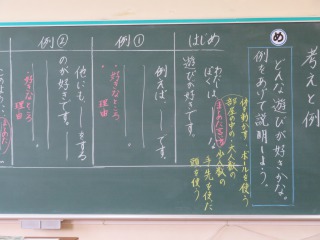 考えと例
め
どんな遊びが好きかな。
例をあげて説明しよう。
体を動かす ボールを使う
部屋の中の 大人数の
少人数の
手先を使った
頭を使う
はじめ
わたしは、
ぼくは、
遊びが好きです。
例①
例えば、
です。
好きなところ、
理由
例②
他にも
をする
のが好きです。
好きなところ、
理由
このように、